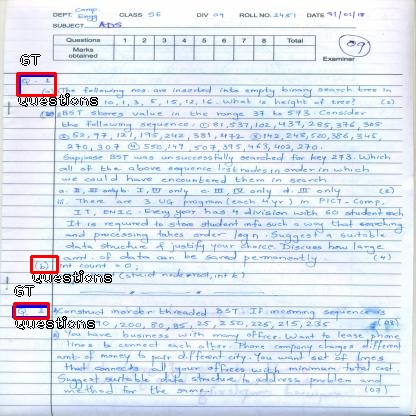 DEPT. Comp. Engg CLASS SE DIV 09 ROLL NO. 2451 DATE 31/01/18
SUBJECT ADS
Questions 1 2 3 4 5 6 7 8 Total
Marks obtained
09
Examiner
GT
Q-1
Questions
The following nos. are inserted into empty binary search tree in
10, 1, 3, 5, 15, 12, 16. What is height of tree? (2)
BST stores value in the range 37 to 573. Consider
the following sequence. ① 81, 537, 102, 439, 285, 376, 305
② 52, 97, 121, 195, 242, 381, 472 ③ 142, 248, 520, 386, 345
270, 307 ④ 550, 149, 507, 395, 463, 402, 270.
Suppose BST was unsuccessfully searched for key 273. Which
all of above sequence list nodes in order in which
we could have encountered them in search
a. II, III only b. I, III only c. III, IV only d. III only (2)
iii. There are 3 UG program (each 4 yr) in PICT - Comp,
IT, EnTC. Every year has 4 division with 60 student each
It is required to store student info such a way that searching
and processing takes order log n. Suggest a suitable
data structure & justify your choice. Discuss how large
amt. of data can be saved permanently (4)
(b) int count = 0;
Questions
(struct node *root, int k)
GT
Q. 2
Questions
Construct inorder threaded BST. If incoming sequence is
10, 200, 80, 85, 25, 250, 225, 215, 235
You have business with many office. Want to lease phone
lines to connect each other. Phone company charges different
amt. of money to pair different city. You want set of lines
that connects all your offices with minimum total cost
Suggest suitable data structure to address problem and
method for the same.